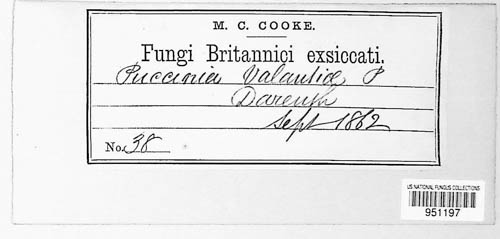 M. C. COOKE.
Fungi Britannici exsiccati.
Puccinia Valantiæ P
Darenth
Sept 1862
No. 38
US NATIONAL FUNGUS COLLECTIONS
951197